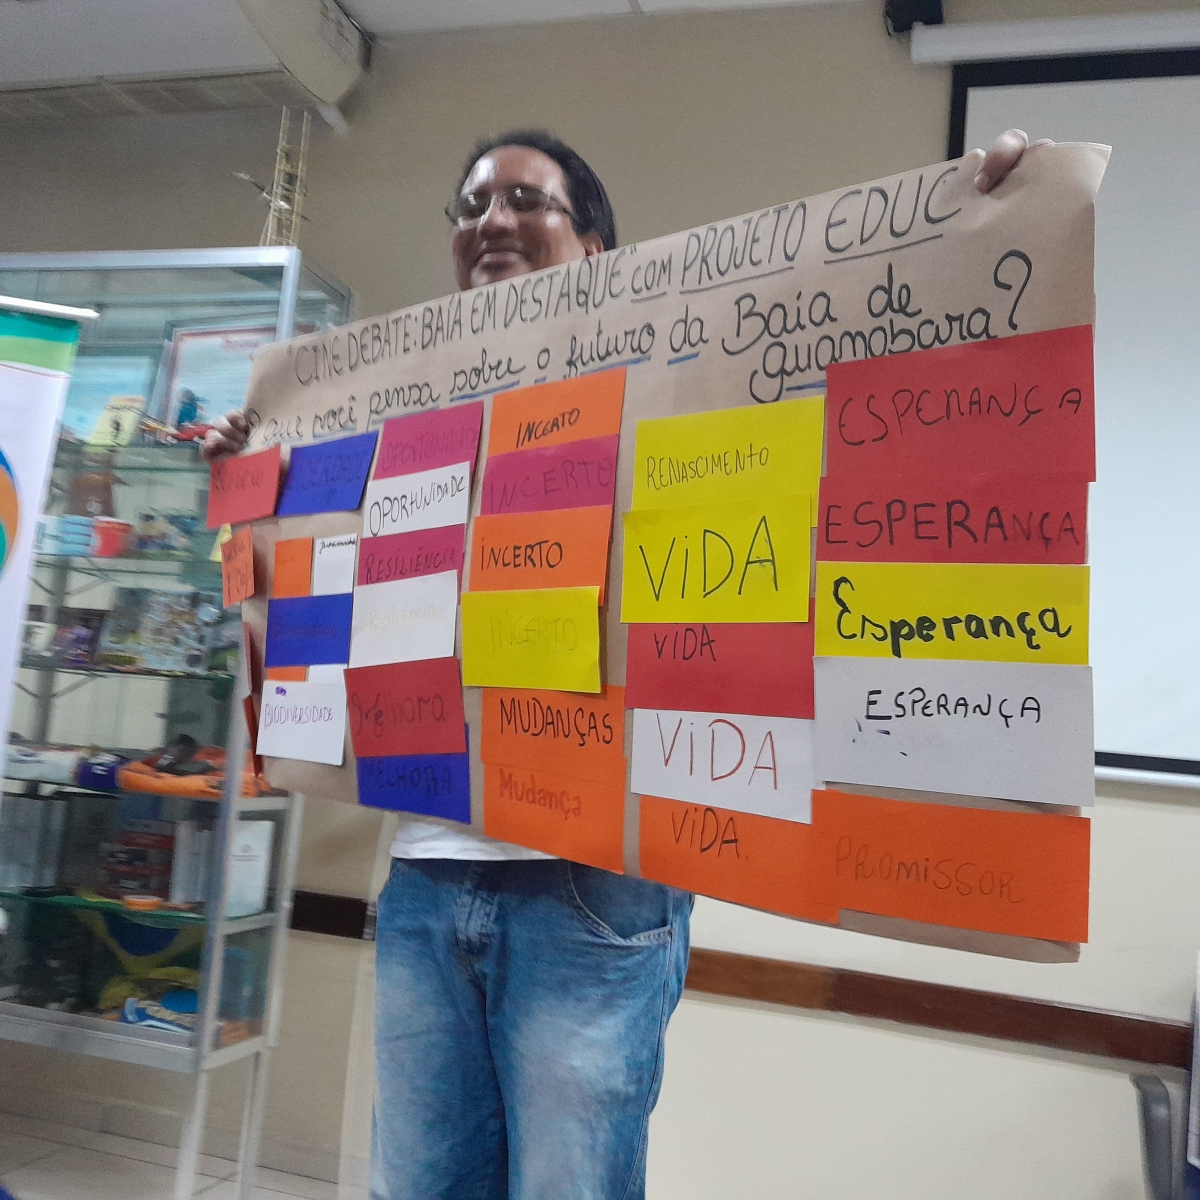 "CINE DEBATE: BAÍA EM DESTAQUE" com PROJETO EDUC
O que você pensa sobre o futuro da Baía de
guanabara?
OPORTUNIDADE
OPORTUNIDADE
RESILIÊNCIA
Resiliência
Melhora
MELHORA
BIODIVERSIDADE
INCERTO
INCERTO
INCERTO
INCERTO
MUDANÇAS
Mudança
RENASCIMENTO
ViDA
ViDA
ViDA
ViDA.
ESPERANÇA
ESPERANÇA
Esperança
ESPERANÇA
PROMiSSOR